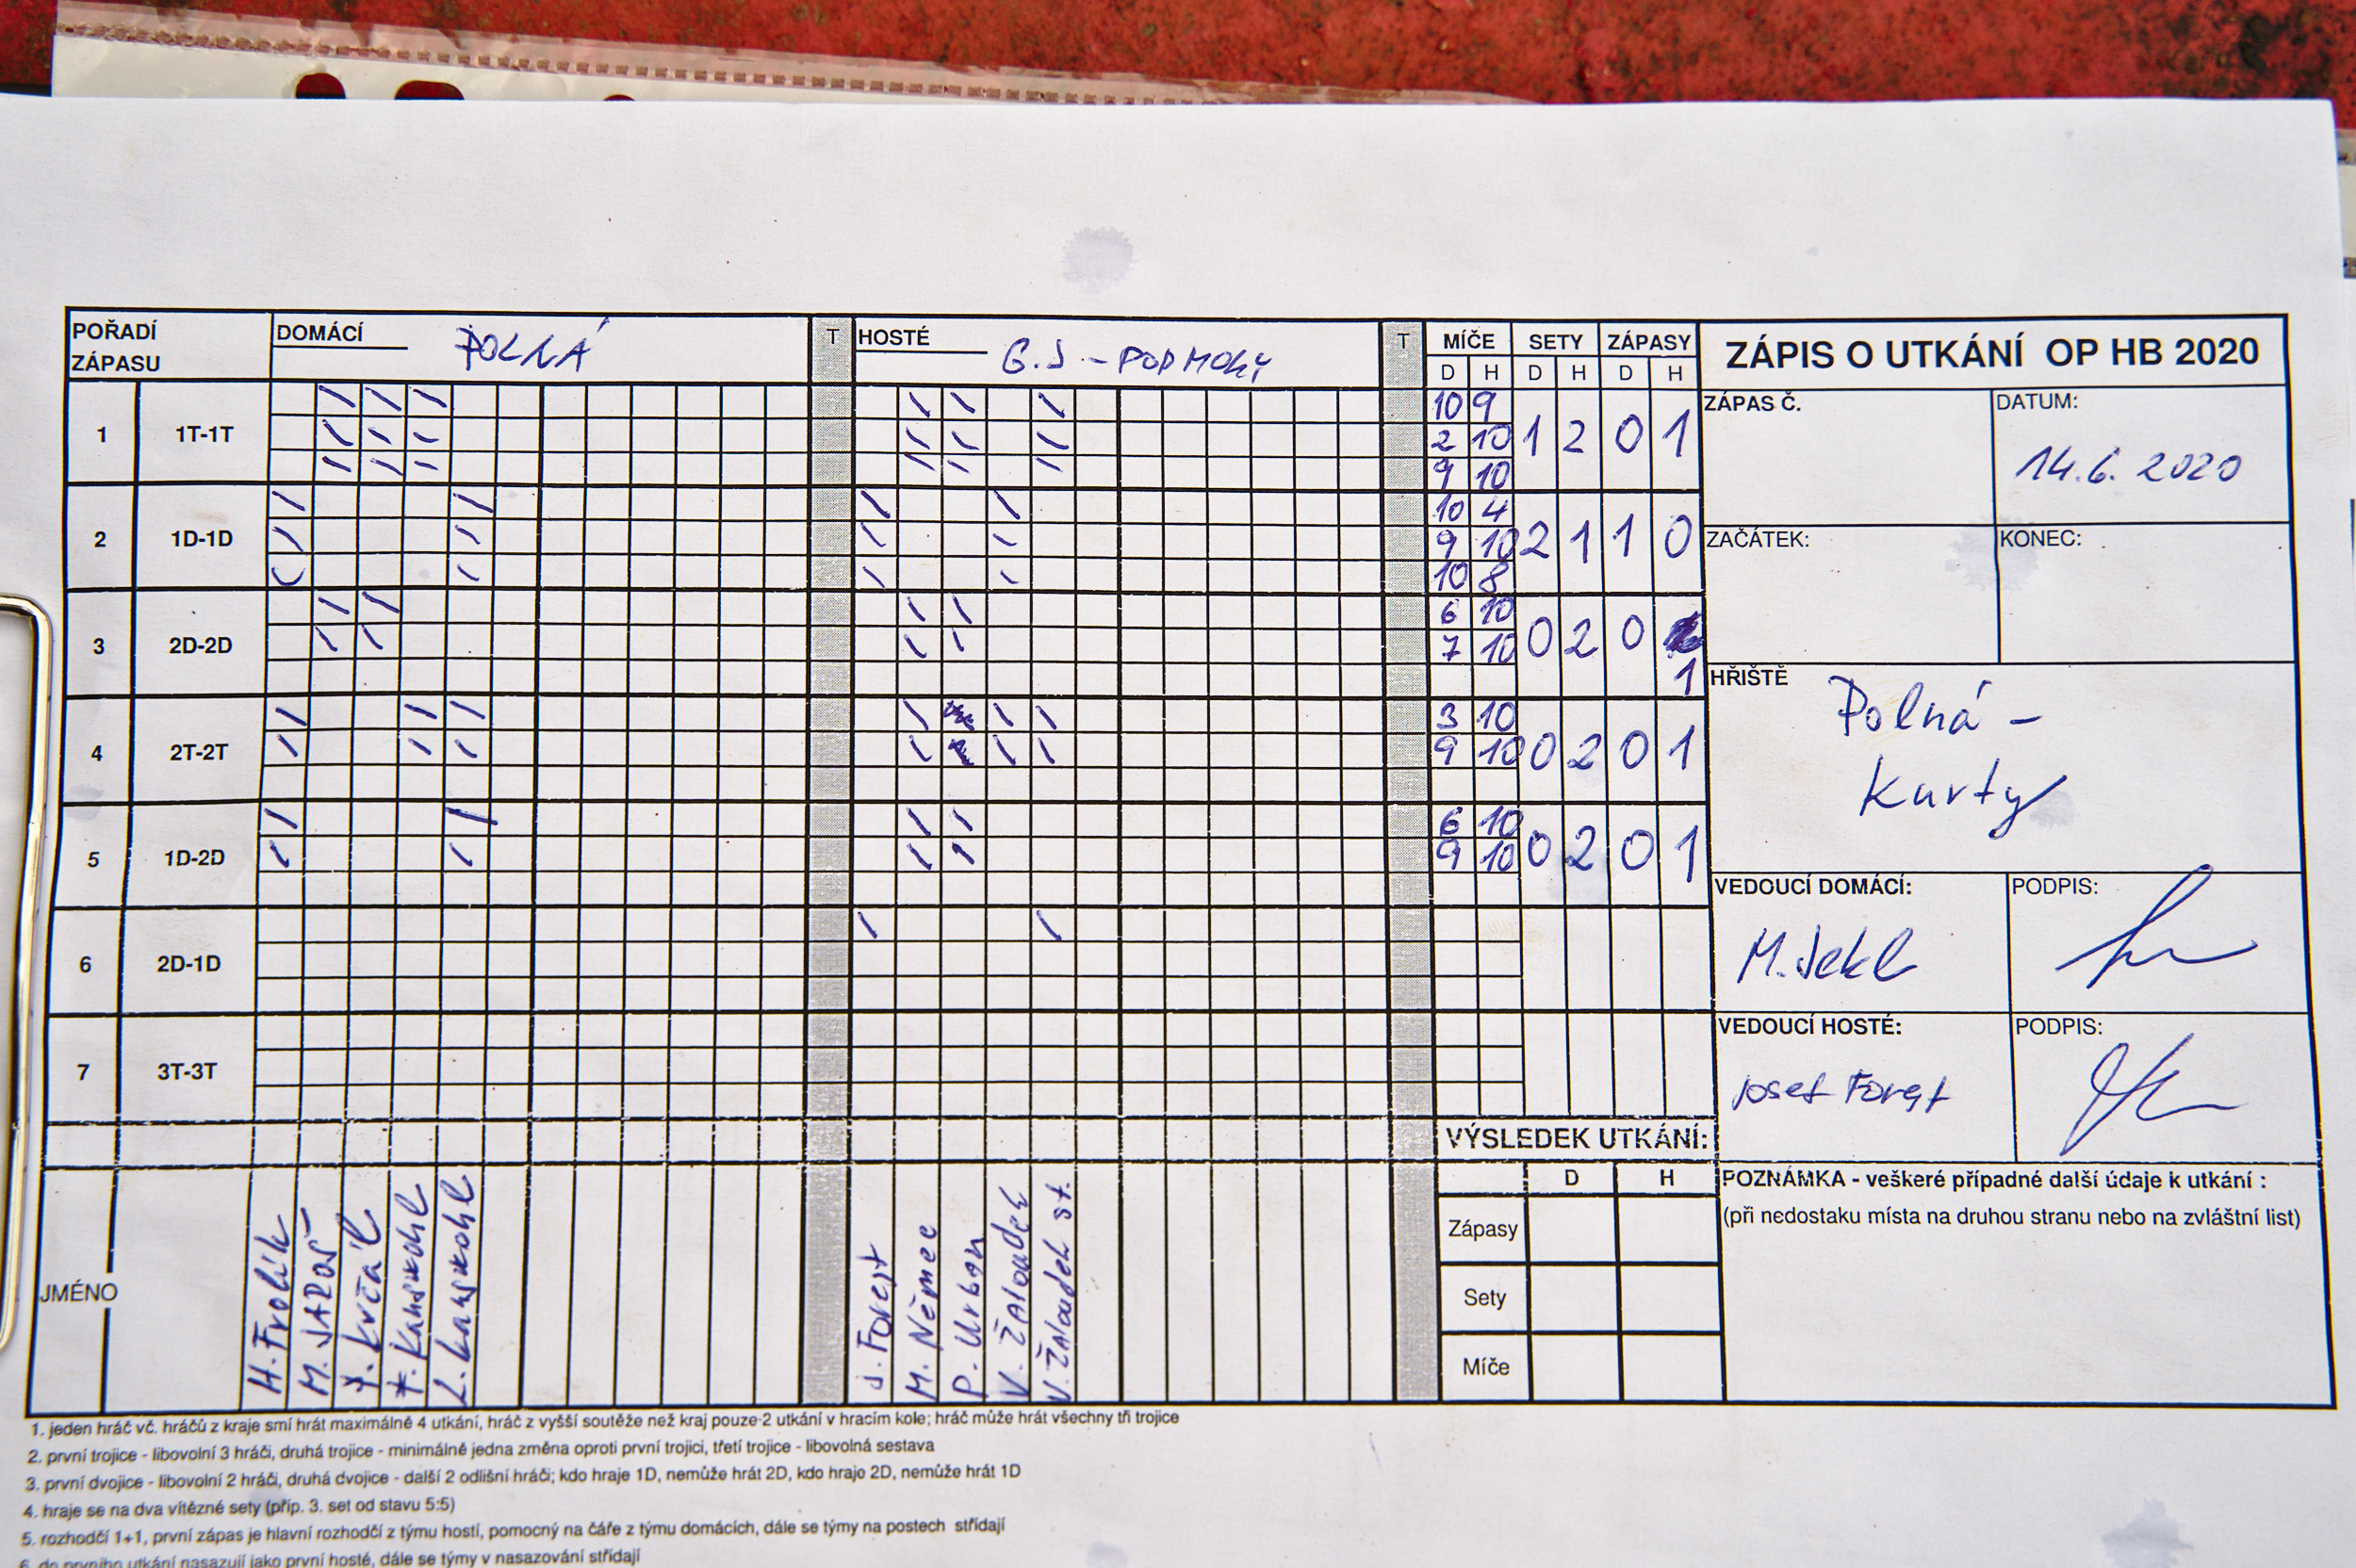 POŘADÍ ZÁPASU
DOMÁCÍ POLNÁ T HOSTÉ G.J - PODMOKY T
MÍČE SETY ZÁPASY
D H D H D H
1 1T-1T
10 9
2 10 1 2 0 1
9 10
2 1D-1D
10 4
9 10 2 1 1 0
10 8
3 2D-2D
6 10
7 10 0 2 0
1
4 2T-2T
3 10
9 10 0 2 0 1
5 1D-2D
6 10
9 10 0 2 0 1
6 2D-1D
7 3T-3T
VÝSLEDEK UTKÁNÍ:
D H
Zápasy
Sety
Míče
JMÉNO
H. Frolík
M. JAROŠ
J. Kvčál
L. Kamskohl
J. Forejt
M. Němec
P. Urban
V. Žaloudek
V. Žaloudek st.
ZÁPIS O UTKÁNÍ OP HB 2020
ZÁPAS Č.
DATUM:
14.6. 2020
ZAČÁTEK:
KONEC:
HŘIŠTĚ
Polná -
Kurty
VEDOUCÍ DOMÁCÍ:
M. Jekl
PODPIS:
VEDOUCÍ HOSTÉ:
Josef Forejt
PODPIS:
POZNÁMKA - veškeré případné další údaje k utkání :
(při nedostaku místa na druhou stranu nebo na zvláštní list)
1. jeden hráč vč. hráčů z kraje smí hrát maximálně 4 utkání, hráč z vyšší soutěže než kraj pouze 2 utkání v hracím kole; hráč může hrát všechny tři trojice
2. první trojice - libovolní 3 hráči, druhá trojice - minimálně jedna změna oproti první trojici, třetí trojice - libovolná sestava
3. první dvojice - libovolní 2 hráči, druhá dvojice - další 2 odlišní hráči; kdo hraje 1D, nemůže hrát 2D, kdo hraje 2D, nemůže hrát 1D
4. hraje se na dva vítězné sety (příp. 3. set od stavu 5:5)
5. rozhodčí 1+1, první zápas je hlavní rozhodčí z týmu hostí, pomocný na čáře z týmu domácích, dále se týmy na postech střídají
6. do prvního utkání nasazují jako první hosté, dále se týmy v nasazování střídají